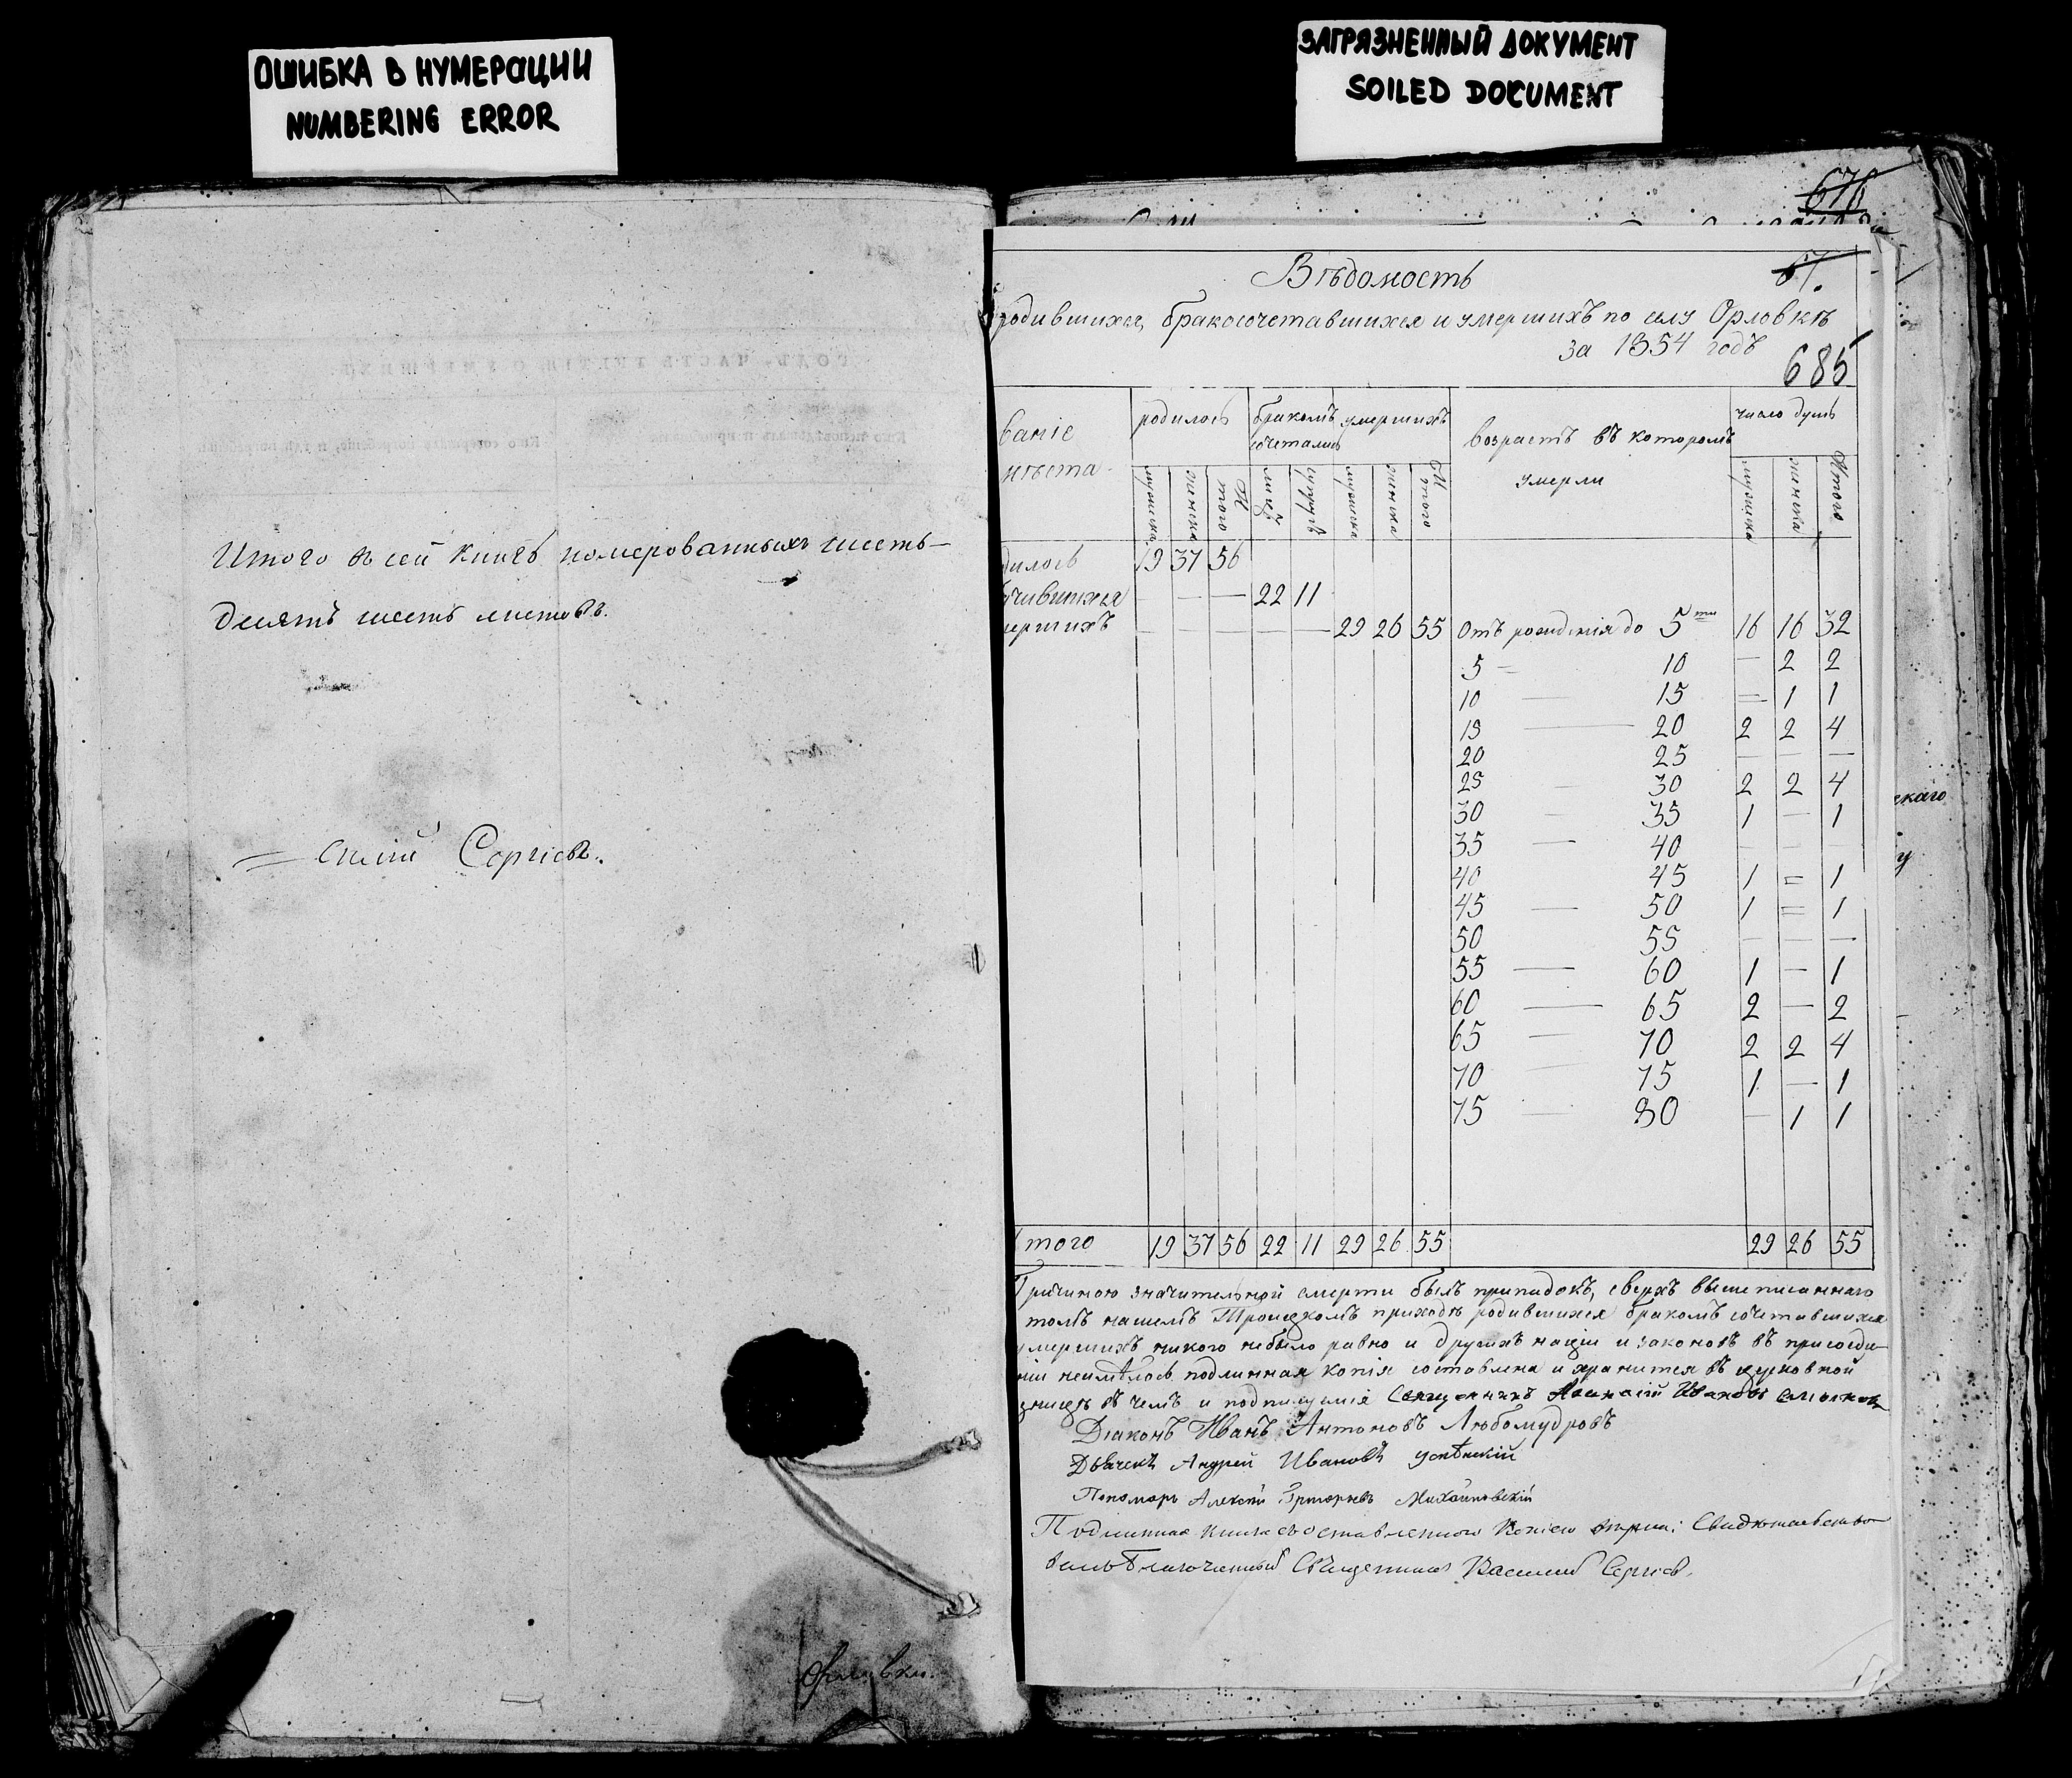 ОШИБКА В НУМЕРАЦИИ
NUMBERING ERROR
ЗАГРЯЗНЕННЫЙ ДОКУМЕНТ
SOILED DOCUMENT
Итого в сей книгѣ номерованныхъ шесть-
десятъ шесть листовъ.
Сергіевъ.
676
Вѣдомость
67.
родившихся, бракосочетавшихся и умершихъ по селу Орловкѣ
за 1854 годъ
685
ваніе мѣста родилось бракомъ сочетались умершихъ возрастъ въ которомъ умерли число душъ
мужеска женска Итого лицъ супруж мужеска женска Итого мужеска женска Итого
дилось 19 37 56
чившихся — — — 22 11
мершихъ — — — — — 29 26 55 Отъ рожденія до 5ти 16 16 32
5 — 10 — 2 2
10 — 15 — 1 1
15 — 20 2 2 4
20 25 — — —
25 — 30 2 2 4
30 — 35 1 — 1
35 — 40 — — —
40 45 1 = 1
45 — 50 1 = 1
50 55 — — —
55 — 60 1 — 1
60 — 65 2 — 2
65 — 70 2 2 4
70 — 75 1 — 1
75 — 80 — 1 1
того 19 37 56 22 11 29 26 55 29 26 55
Причиною значительной смерти былъ припадокъ, сверхъ вышеписаннаго
томъ нашемъ Троицкомъ приходѣ родившихся бракомъ сочетавшихся
умершихъ никого небыло равно и другихъ націи и законовъ въ присоеди-
ніи неимѣлось, подлинная копія составлена и хранится въ церковной
въ чемъ и подписуемся Священникъ Ивановъ
Діаконъ Иванъ Антоновъ Любомудровъ
Дьячекъ Андрей Ивановъ Успѣнскій
Пономарь Алексѣй Григорьевъ Михайловскій
Подлинная книга съ составленною Копіею вѣрна: Свидѣтельство
валъ Благочинный Священникъ Василий Сергіевъ.
Орловки.